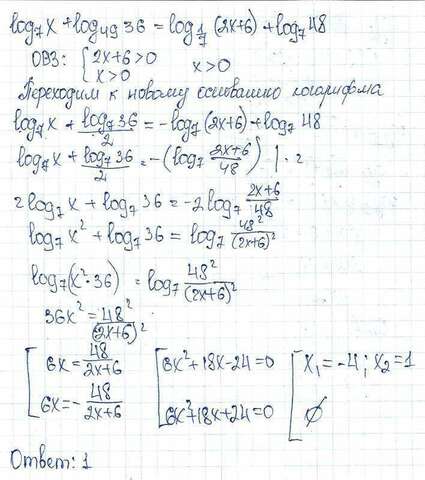 log₇x + log₄₉36 = log_{1/7}(2x+6) + log₇48
ОВЗ: { 2x+6>0
x>0 x>0
Переходим к новому основанию логарифма
log₇x + log₇36/2 = -log₇(2x+6) + log₇48
log₇x + log₇36/2 = -(log₇ (2x+6)/48) | · 2
2log₇x + log₇36 = -2log₇ (2x+6)/48
log₇x² + log₇36 = log₇ 48²/(2x+6)²
log₇(x²·36) = log₇ 48²/(2x+6)²
36x² = 48²/(2x+6)²
[ 6x = 48/(2x+6) [ 6x²+18x-24=0 [ x₁=-4; x₂=1
6x = -48/(2x+6) 6x²+18x+24=0 ∅
Ответ: 1